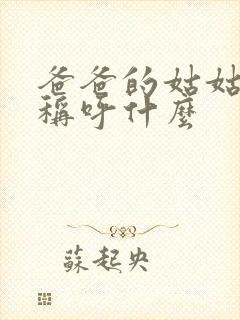 爸爸的姑姑
稱呼什麼
蘇起央